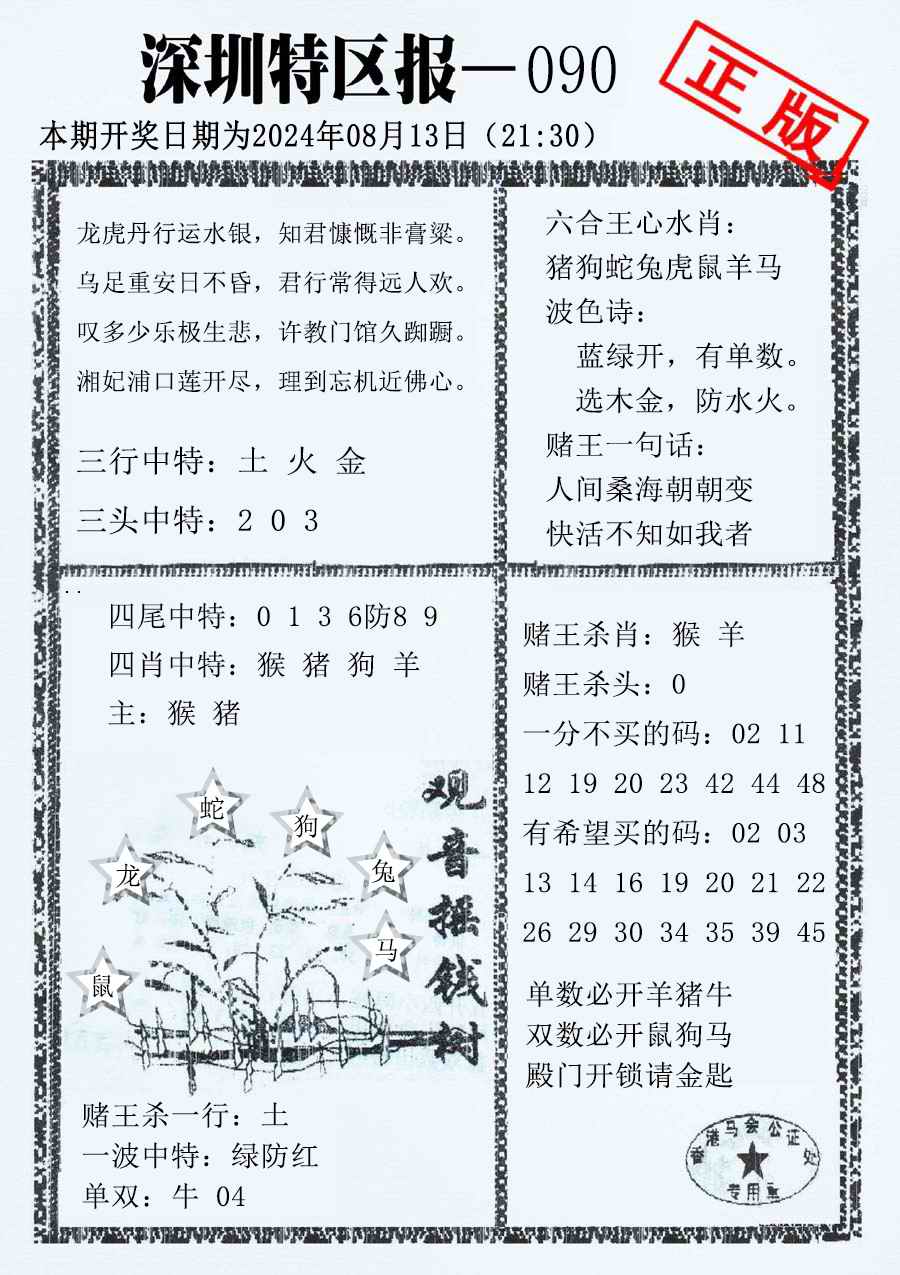 深圳特区报－090
正版
本期开奖日期为2024年08月13日（21:30）
龙虎丹行运水银，知君慷慨非膏梁。
乌足重安日不昏，君行常得远人欢。
叹多少乐极生悲，许教门馆久踟蹰。
湘妃浦口莲开尽，理到忘机近佛心。
三行中特：土 火 金
三头中特：2 0 3
六合王心水肖：
猪狗蛇兔虎鼠羊马
波色诗：
蓝绿开，有单数。
选木金，防水火。
赌王一句话：
人间桑海朝朝变
快活不知如我者
四尾中特：0 1 3 6防8 9
四肖中特：猴 猪 狗 羊
主：猴 猪
蛇
狗
龙
兔
马
鼠
观音摇钱树
赌王杀一行：土
一波中特：绿防红
单双：牛 04
赌王杀肖：猴 羊
赌王杀头：0
一分不买的码：02 11
12 19 20 23 42 44 48
有希望买的码：02 03
13 14 16 19 20 21 22
26 29 30 34 35 39 45
单数必开羊猪牛
双数必开鼠狗马
殿门开锁请金匙
香港马会公证处
专用章